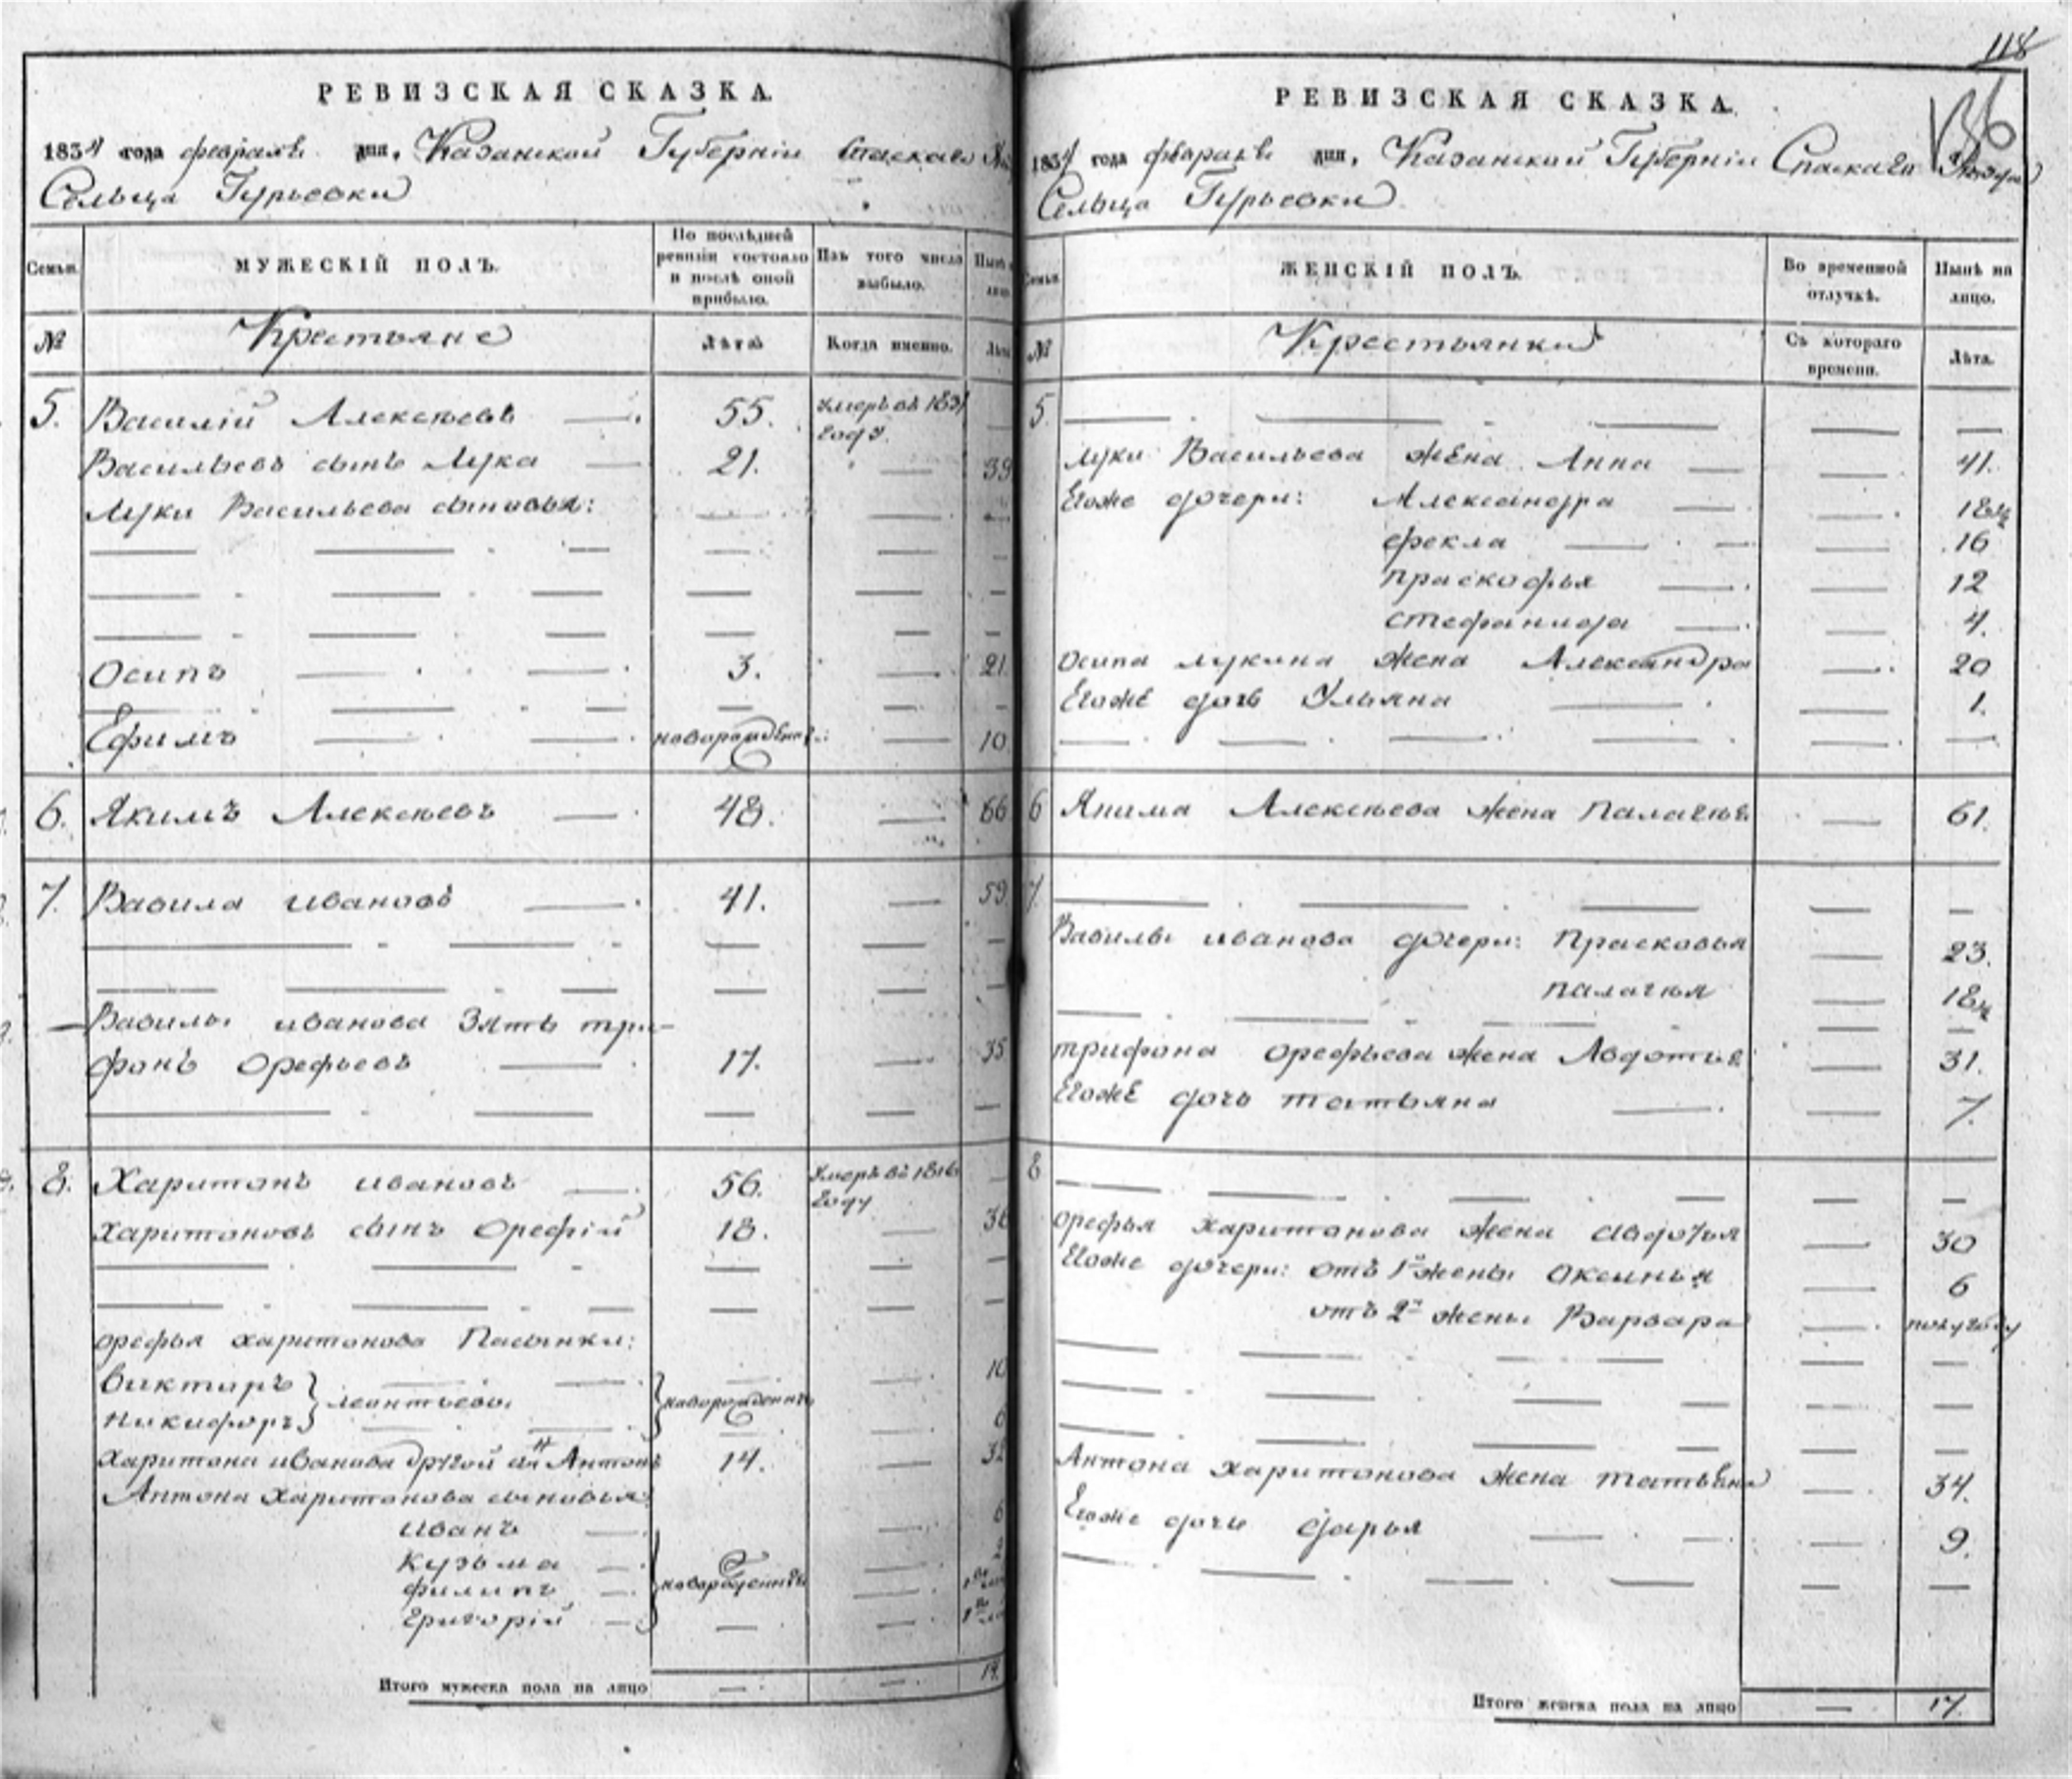 118
136
РЕВИЗСКАЯ СКАЗКА.
1834 года февраля дня, Казанской Губерніи Спаскаго
Сельца Гурьевки
Семьи.
МУЖЕСКІЙ ПОЛЪ.
По послѣдней ревизіи состояло и послѣ оной прибыло.
Изъ того числа выбыло.
№
Крестьяне
Лѣта
Когда именно.
5. Василій Алексѣевъ — 55. Умеръ въ 1831 году. —
Васильевъ сынъ Лука — 21. — 39
Луки Васильева сыновья: — — —
Осипъ — 3. — 21
Ефимъ — новорожденъ — 10
6. Якимъ Алексѣевъ — 48. — 66
7. Вавила Ивановъ — 41. — 59
Вавилы Иванова Зять Три-
фонъ Орефьевъ — 17. — 35
8. Харитонъ Ивановъ — 56. Умеръ въ 1816 году —
Харитоновъ сынъ Орефій 18. — 36
Орефья Харитонова Пасынки:
Викторъ } Леонтьевы } новорожденны — 10
Никифоръ — 6
Харитона Иванова другой сынъ Антонъ 14. — 32
Антона Харитонова сыновья
Иванъ — 6
Кузьма — новорожденны — 2
Филипъ —
Григорій —
Итого мужеска пола на лицо — — 14
РЕВИЗСКАЯ СКАЗКА.
1834 года февраля дня, Казанской Губерніи Спаскаго Уѣзда
Сельца Гурьевки
Семьи
ЖЕНСКІЙ ПОЛЪ.
Во временной отлучкѣ.
Нынѣ на лицо.
№
Крестьянки
Съ котораго времени.
Лѣта.
5 — — —
Луки Васильева жена Анна — — 41.
Егоже дочери: Александра — — 18
Фекла — — 16
Праскофья — — 12
Стефанида — — 4.
Осипа Лукина жена Александра — 20
Егоже дочь Ульяна — — 1.
6 Якима Алексѣева жена Палагѣя — 61.
7 — — —
Вавилы Иванова дочери: Прасковья — 23.
Палагея — 18
Трифона Орефьева жена Авдотья — 31.
Егоже дочь Татьяна — — 7.
8 — — —
Орефья Харитонова жена Авдотья — 30
Егоже дочери: отъ 1й жены Аксинья — 6
отъ 2й жены Варвара — полугоду
Антона Харитонова жена Татьяна — 34.
Егоже дочь Дарья — — 9.
Итого женска пола на лицо — 17.